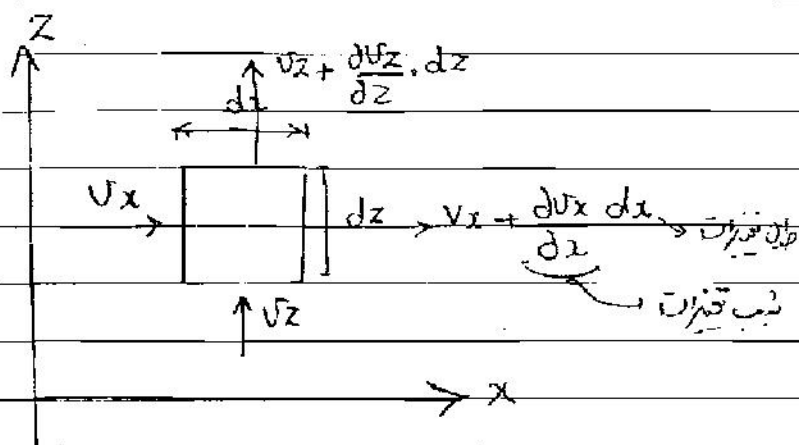 Z
Vz + ∂Vz/∂z . dz
dx
Vx
dz
Vx + ∂Vx/∂x dx
طول تغییرات
شیب تغییرات
Vz
x